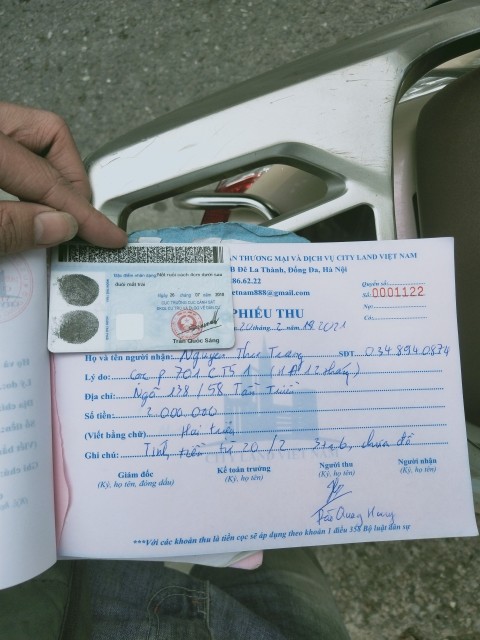 Đặc điểm nhân dạng: Nốt ruồi cách 3cm dưới sau
Ngày 26 tháng 07 năm
CỤC TRƯỞNG CỤC CẢNH SÁT
Trần Quốc Sảng
THƯƠNG MẠI VÀ DỊCH VỤ CITY LAND VIỆT NAM
B Đê La Thành, Đống Đa, Hà Nội
.86.62.22
etnam888@gmail.com
Quyển số:
Số: 0001122
Nợ:
Có:
PHIẾU THU
20 tháng 2 năm 2021
Họ và tên người nhận: Nguyễn Thu Trang SĐT 034.894.0874
Lý do: Cọc p 701 CT5 1 (HĐ 12 tháng)
Địa chỉ: Ngõ 138/58 Tân Triều
Số tiền: 2 000.000
(Viết bằng chữ) Hai triệu
Ghi chú: Tính tiền từ 20/2 3tr6, chưa đồ
Giám đốc Kế toán trưởng Người thu Người nhận
(Ký, họ tên, đóng dấu) (Ký, họ tên) (Ký, họ tên) (Ký, họ tên)
Quang Hưng
***Với các khoản thu là tiền cọc sẽ áp dụng theo khoản 1 điều 358 Bộ luật dân sự